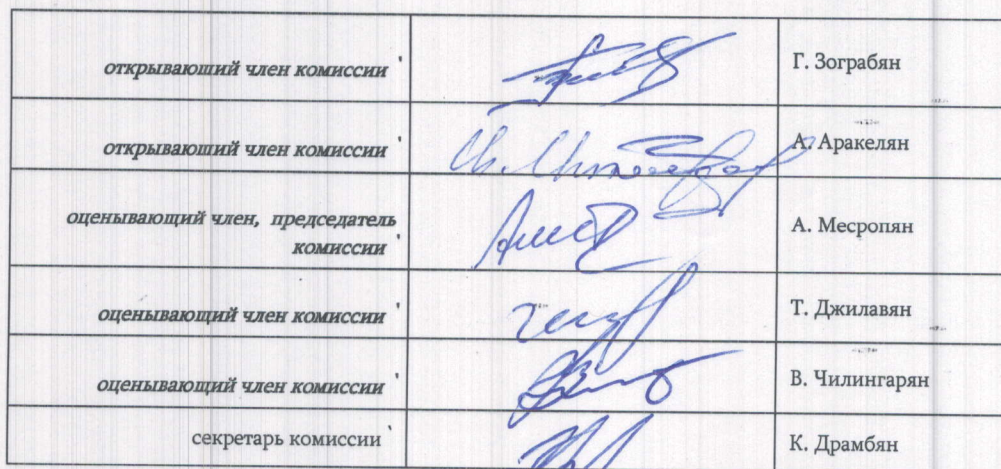 открывающий член комиссии ՝ Г. Зограбян
открывающий член комиссии ՝ А. Аракелян
оценывающий член, председатель
комиссии ՝ А. Месропян
оценывающий член комиссии ՝ Т. Джилавян
оценывающий член комиссии ՝ В. Чилингарян
секретарь комиссии ՝ К. Драмбян